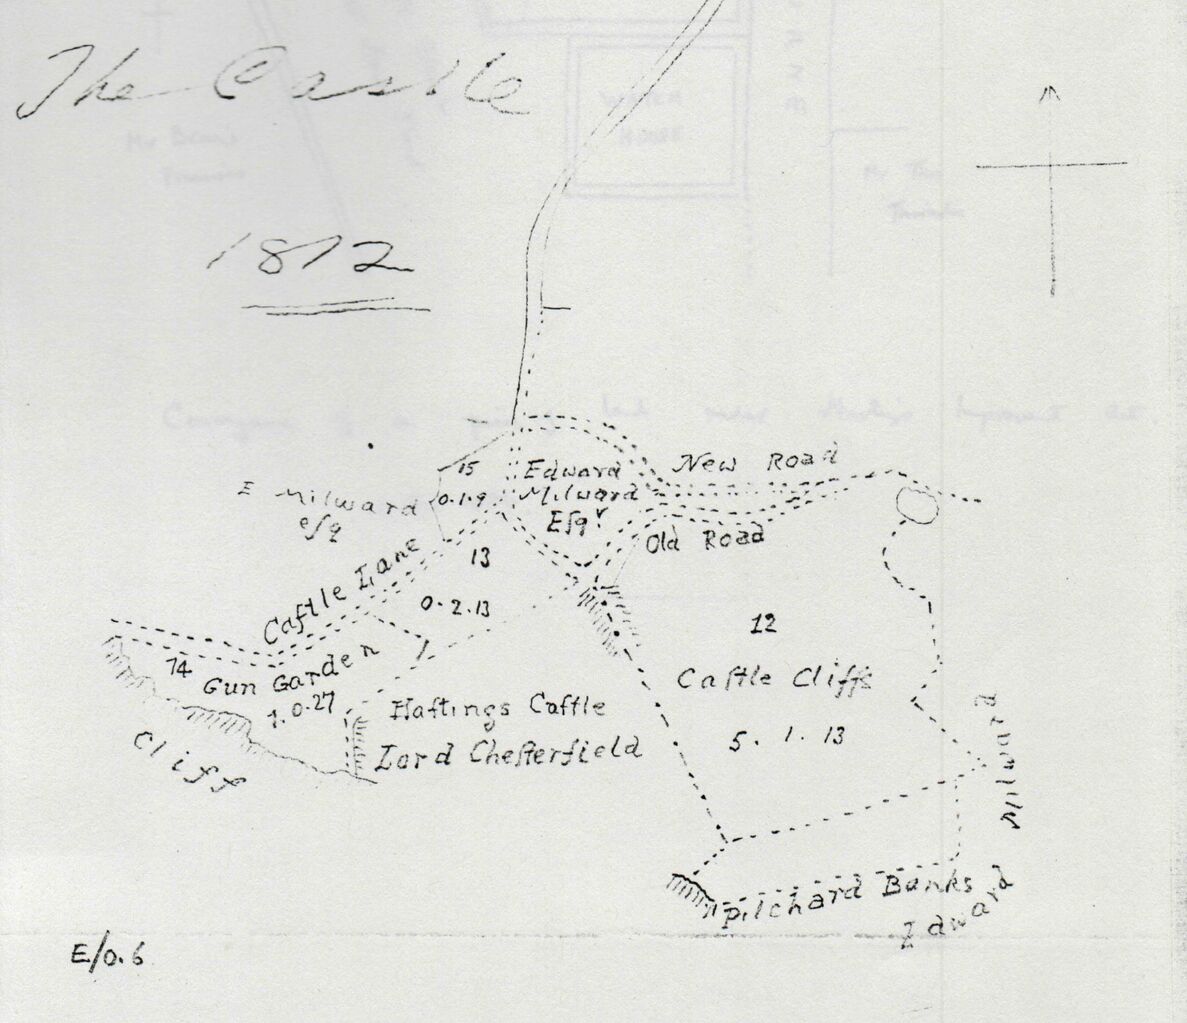 The Castle
1812
New Road
15
Edward
E Milward
0.1.9
Milward
eſq
Eſqr
Old Road
13
Caſtle Lane
0.2.13
12
74
Gun Garden
Castle Cliffs
1.0.27
Haſtings Caſtle
Cliff
Lord Cheſterfield
5. 1. 13
Milward
Pilchard Banks
Edward
E/0.6
WATCH
HOUSE